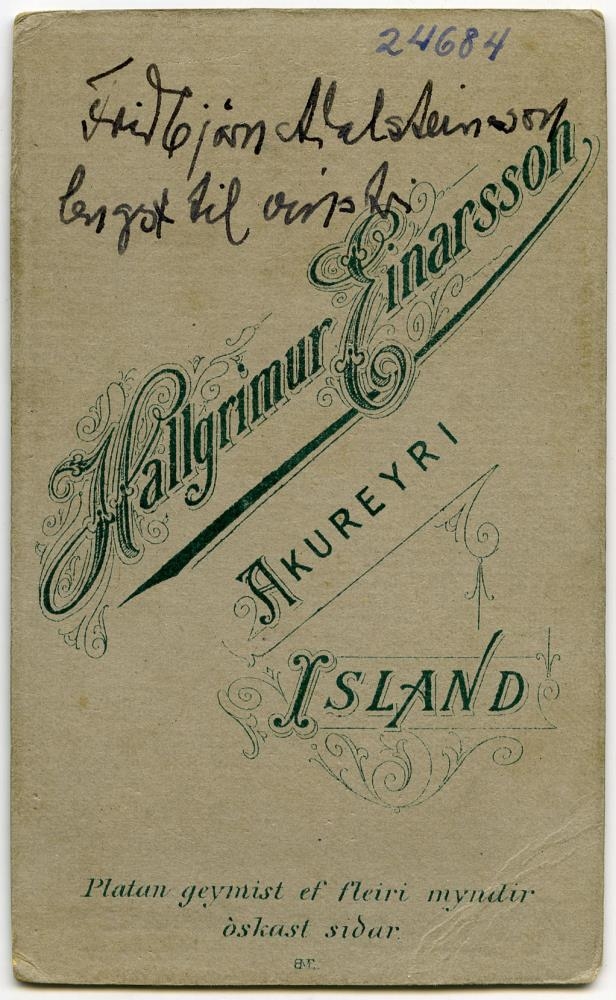 24684
Fridbjörn Adalsteinsson
lengst til vinstri
Hallgrimur Einarsson
AKUREYRI
ISLAND
Platan geymist ef fleiri myndir
òskast siðar.